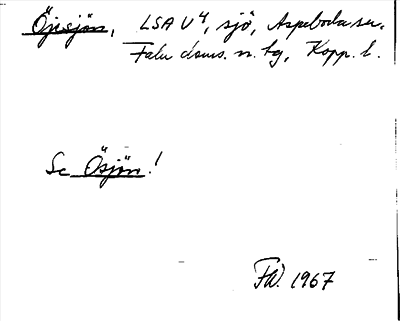 Öjsjön, LSA U4, sjö, Aspeboda sn.
Falu doms. n. tg, Kopp. l.
Se Ösjön!
FW. 1967